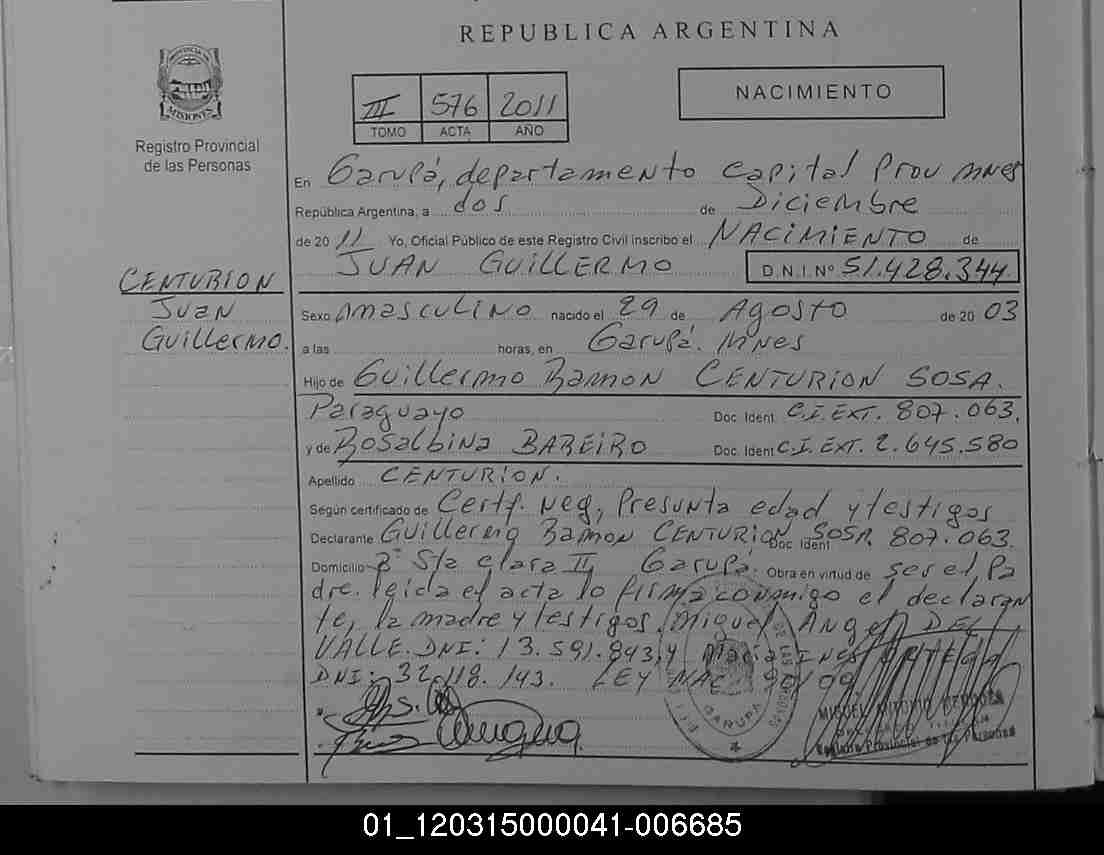 REPUBLICA ARGENTINA
PROVINCIA DE
MISIONES
Registro Provincial
de las Personas
III 576 2011
TOMO ACTA AÑO
NACIMIENTO
En Garupá, departamento Capital Prov MNES
República Argentina, a dos de Diciembre
de 2011 Yo, Oficial Público de este Registro Civil inscribo el NACIMIENTO de
JUAN GUILLERMO D.N.I. Nº 51.428.344
CENTURION
Juan
Guillermo.
Sexo masculino nacido el 29 de Agosto de 2003
a las horas, en Garupá. MNES
Hijo de Guillermo Ramon CENTURION SOSA.
Paraguayo Doc. Ident. C.I. EXT. 807.063.
y de Rosalbina BAREIRO Doc. Ident C.I. EXT. 2.645.580
Apellido CENTURION.
Según certificado de Certf. Neg, Presunta edad y testigos
Declarante Guillermo Ramon CENTURION SOSA Doc Ident 807.063.
Domicilio Bº Sta Clara II Garupá. Obra en virtud de ser el Pa
dre. leida el acta lo firma conmigo el declaran
te, la madre y testigos, Miguel Angel DEL
VALLE. DNI: 13.591.843, y Maria Ines
DNI: 32.118.143. LEY NAC.
GARUPA
MIGUEL ANTONIO
Registro Provincial de las Personas
01_120315000041-006685